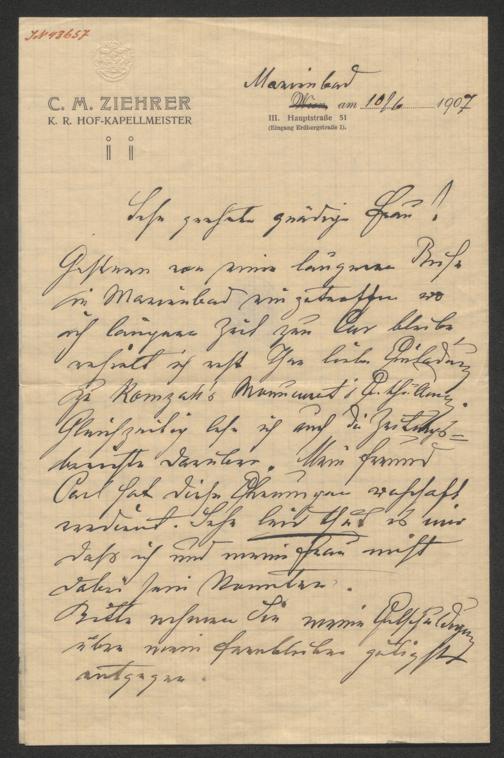 JN 43657
C. M. ZIEHRER
K. R. HOF-KAPELLMEISTER
Marienbad
Wien, am 10/6 1907
III. Hauptstraße 51
(Eingang Erdbergstraße 1).
Sehr geehrte gnädige Frau!
Gestern von einer längeren Reise
in Marienbad eingetroffen wo
ich längere Zeit zur Cur bleibe
erhielt ich erst Ihre liebe Einladung
zu Komzaks Monument's Enthüllung.
Gleichzeitig lese ich auch die Zeitungs=
berichte darüber. Mein Freund
Carl hat diese Ehrungen wahrhaft
verdient. Sehr leid that es mir
daß ich und meine Frau nicht
dabei sein konnten.
Bitte nehmen Sie meine Entschuldigung
über mein Fernbleiben gütigst
entgegen.